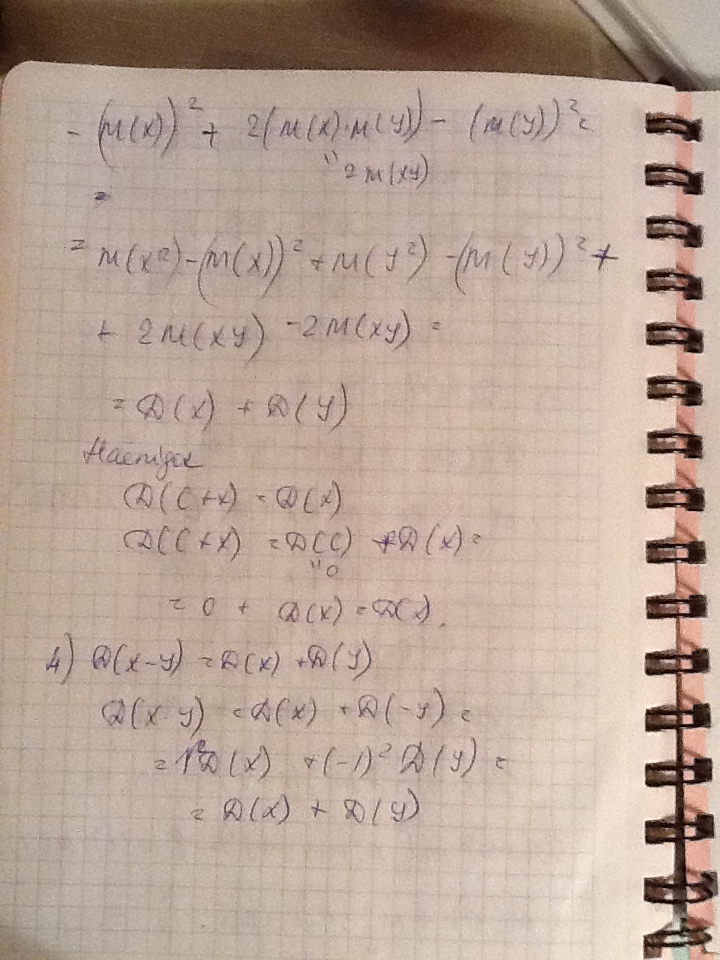 - (M(x))² + 2(M(x)·M(y)) - (M(y))² =
"
2M(xy)
=
= M(x²) - (M(x))² + M(y²) - (M(y))² +
+ 2M(xy) - 2M(xy) =
= D(x) + D(y)
D(C+x) = D(x)
D(C+x) = D(C) + D(x) =
"
0
= 0 + D(x) = D(x).
4) D(x-y) = D(x) + D(y)
D(x-y) = D(x) + D(-y) =
= 1²D(x) + (-1)² D(y) =
= D(x) + D(y)